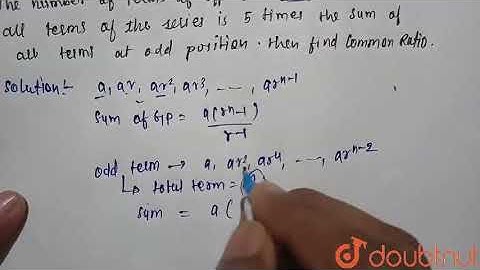 The number of terms of
all terms of the series is 5 times the sum of
all terms at odd position. then find Common Ratio.
Solution:- a, ar, ar², ar³, ----, arⁿ⁻¹
Sum of GP = a(rⁿ-1)
r-1
odd term → a, ar², ar⁴, ----, arⁿ⁻²
↳ total term =
Sum = a(
doubtnut